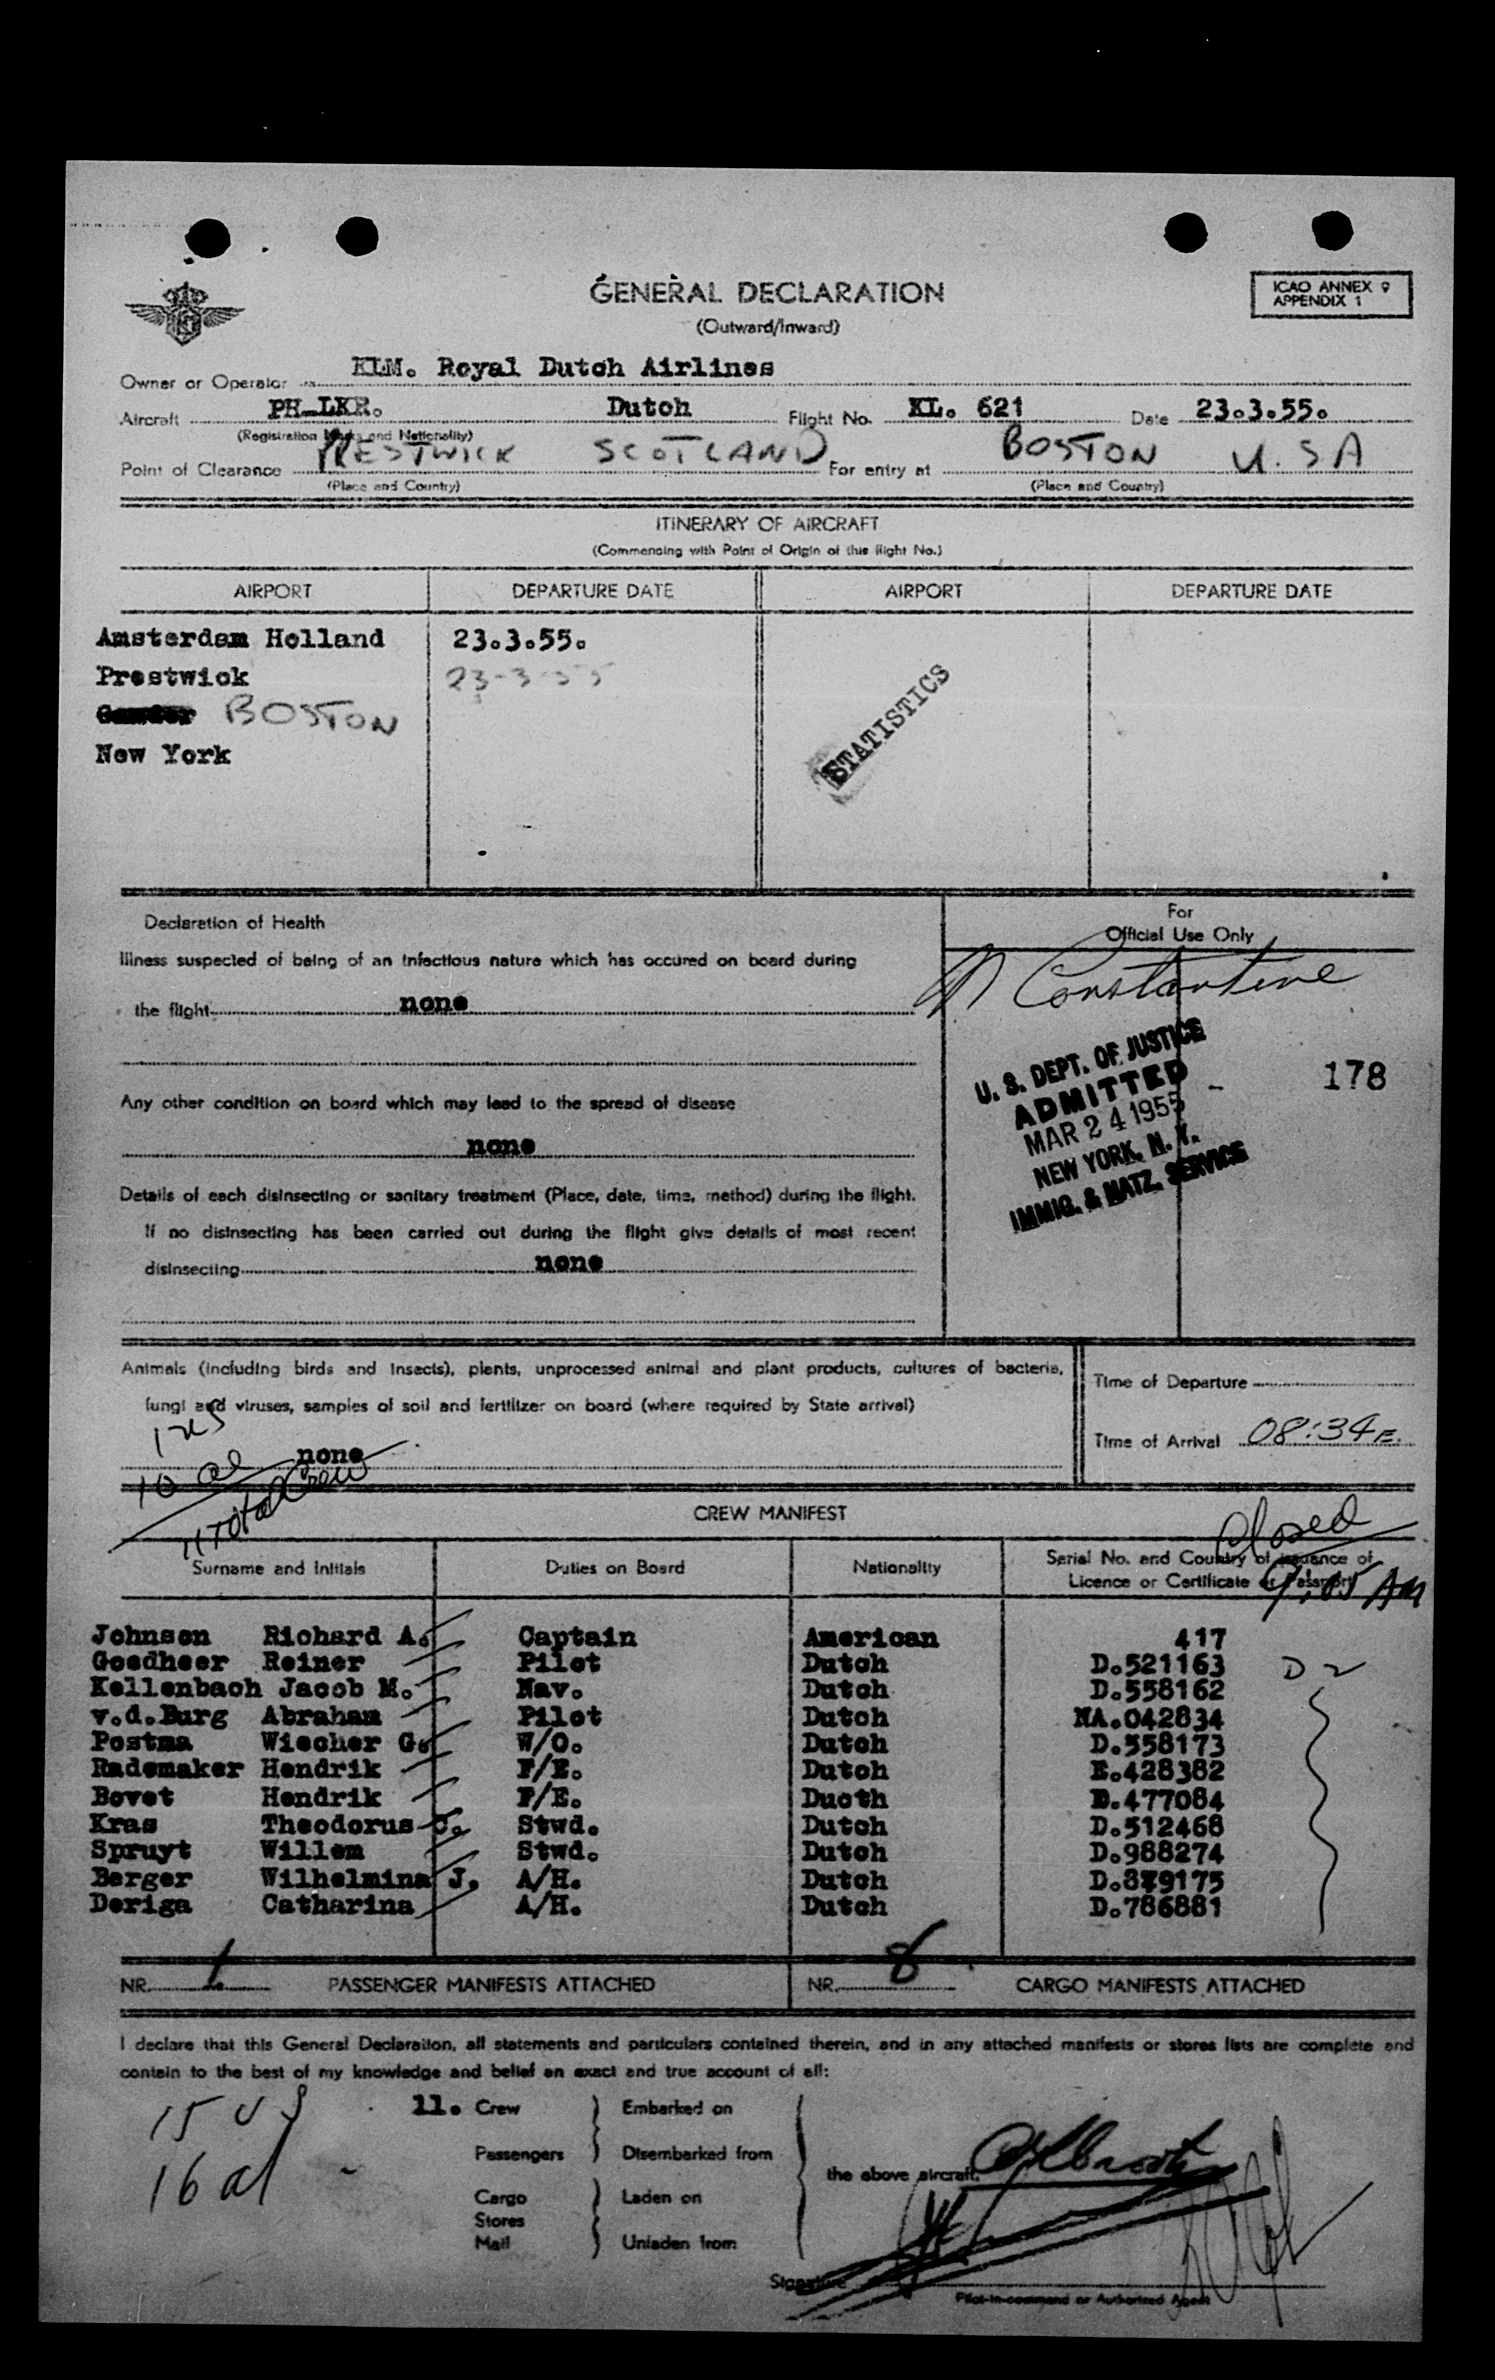 GENERAL DECLARATION
ICAO ANNEX 9
APPENDIX 1
(Outward/Inward)
Owner or Operator KLM. Royal Dutch Airlines
Aircraft PH-LKR. Dutch Flight No. KL. 621 Date 23.3.55.
(Registration Marks and Nationality)
Point of Clearance PRESTWICK SCOTLAND For entry at BOSTON U.S.A
(Place and Country) (Place and Country)
ITINERARY OF AIRCRAFT
(Commencing with Point of Origin of this flight No.)
AIRPORT DEPARTURE DATE AIRPORT DEPARTURE DATE
Amsterdam Holland 23.3.55.
Prestwick 23-3-55
Gander BOSTON
New York
STATISTICS
Declaration of Health
For
Official Use Only
Illness suspected of being of an infectious nature which has occured on board during
the flight none
Constantine
U. S. DEPT. OF JUSTICE
ADMITTED
MAR 24 1955
NEW YORK, N. Y.
IMMIG. & NATZ. SERVICE
178
Any other condition on board which may lead to the spread of disease
none
Details of each disinsecting or sanitary treatment (Place, date, time, method) during the flight.
If no disinsecting has been carried out during the flight give details of most recent
disinsecting none
Animals (including birds and insects), plants, unprocessed animal and plant products, cultures of bacteria,
fungi and viruses, samples of soil and fertilizer on board (where required by State arrival)
none
Time of Departure
Time of Arrival 08:34 E.
1 US
10 al
11 Total Crew
CREW MANIFEST
Closed
9:05 AM
Surname and Initials Duties on Board Nationality Serial No. and Country of issuance of
Licence or Certificate or Passport
Johnson Richard A. Captain American 417
Goedheer Reiner Pilot Dutch D.521163 D 2
Kellenbach Jacob M. Nav. Dutch D.558162
v.d.Burg Abraham Pilot Dutch NA.042834
Postma Wiecher G. W/O. Dutch D.558173
Rademaker Hendrik F/E. Dutch E.428382
Bovet Hendrik F/E. Ducth D.477084
Kras Theodorus J. Stwd. Dutch D.512468
Spruyt Willem Stwd. Dutch D.988274
Berger Wilhelmina J. A/H. Dutch D.879175
Deriga Catharina A/H. Dutch D.786881
NR. 1 PASSENGER MANIFESTS ATTACHED NR. 8 CARGO MANIFESTS ATTACHED
I declare that this General Declaration, all statements and particulars contained therein, and in any attached manifests or stores lists are complete and
contain to the best of my knowledge and belief an exact and true account of all:
15 US
16 al
11. Crew Embarked on
Passengers Disembarked from
the above aircraft.
Cargo Laden on
Stores
Mail Unladen from
Signature
Pilot-in-command or Authorized Agent